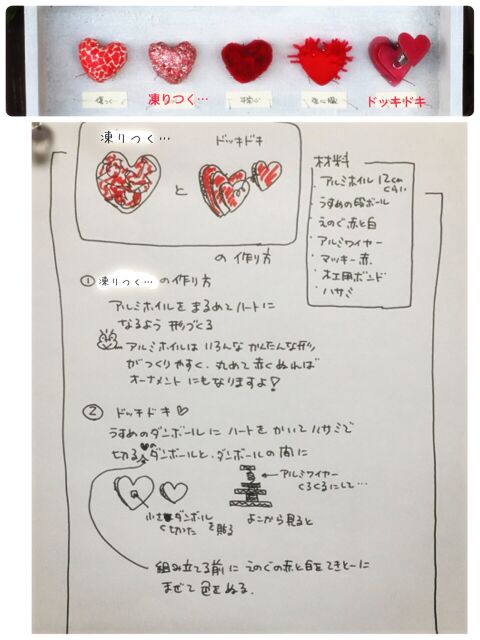 傷つく…
凍りつく…
ドッキドキ
凍りつく…
と
ドッキドキ
の作り方
材料
・アルミホイル 12cmくらい
・うすめの段ボール
・えのぐ 赤と白
・アルミワイヤー
・マッキー 赤
・木工用ボンド
・ハサミ
① 凍りつく… の作り方
アルミホイルをまるめてハートに
なるよう 形づくる
アルミホイルは いろんな かんたんな形
がつくりやすく、丸めて赤くぬれば
オーナメントにもなりますよ!
② ドッキドキ♡
うすめのダンボールに ハートをかいてハサミで
切る
ダンボールと、ダンボールの間に
小さくダンボール
切った
を貼る
← アルミワイヤー
くるくるにして…
よこから見ると
組み立てる前に えのぐの赤と白をてきとーに
まぜて 色をぬる.